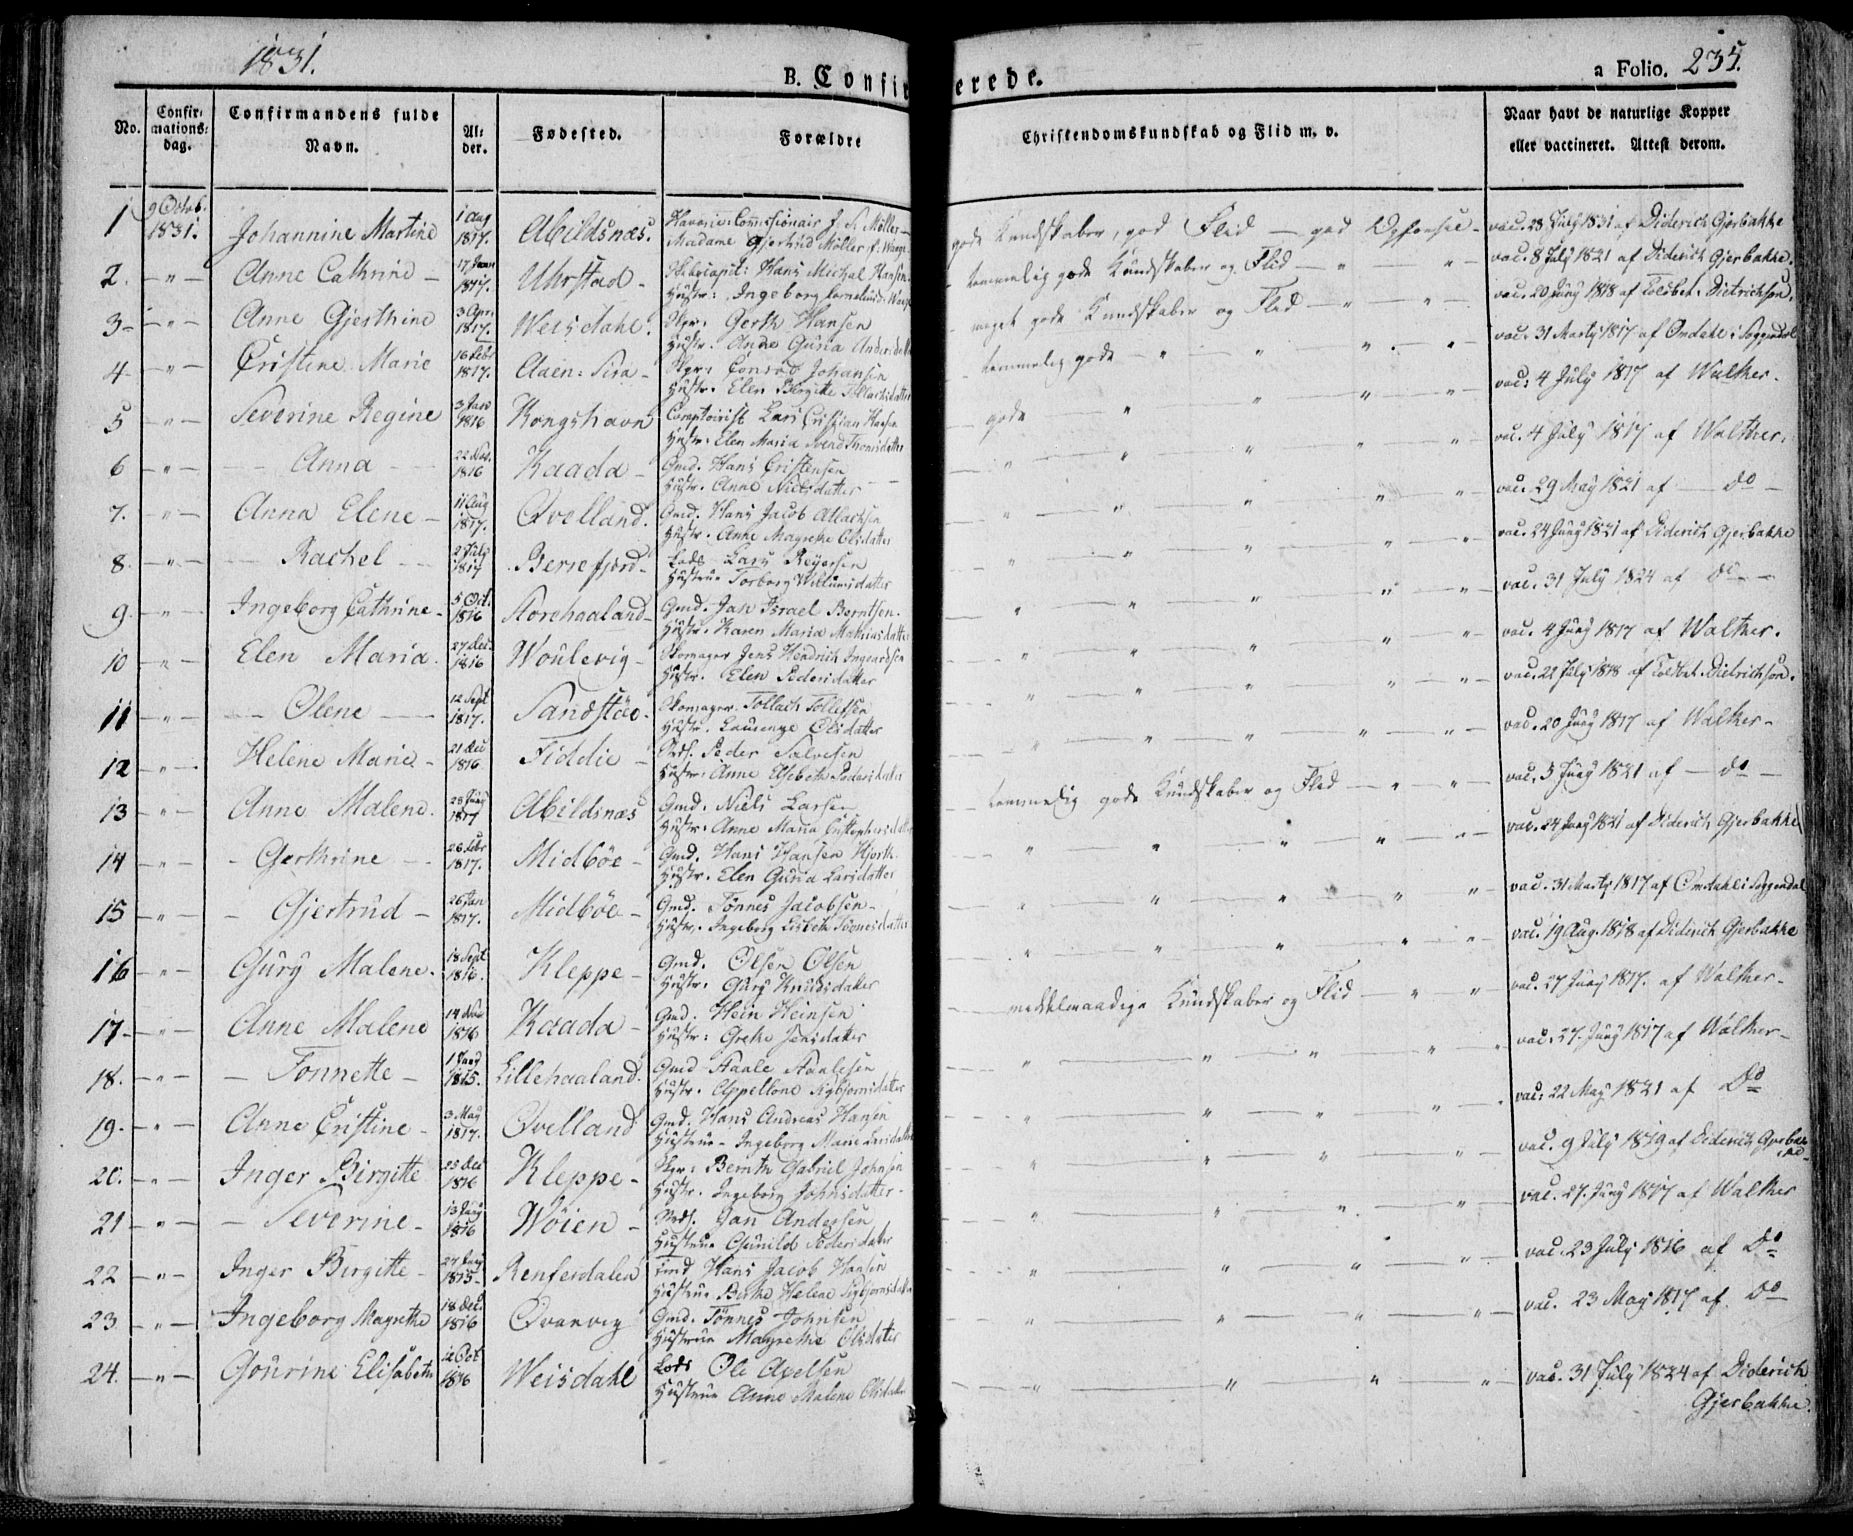 1831.
B. Confirmerede.
a Folio. 235.
No. Confirmationsdag. Confirmandens fulde Navn. Alder. Fødested. Forældre Christendomskundskab og Flid m. v. Naar havt de naturlige Kopper eller vaccineret. Attest derom.
1 9 Octob. 1831. Johannine Martine 1 Aug 1817. Abildsnæs. Madame Gjertrud Møller gode Kundskaber, god Flid — god Opførsel — vac. 28 July 1831 af Diderich Gjerbakke
2. — " — Anne Cathrine — 17 1817. Uhrstad — Hans Michal Hansen Hustr: Ingeborg temmelig gode Kundskaber og Flid — " — " — vac. 8 July 1821 af Diderich Gjerbakke.
3 — " — Anne Gjesthine 3 Apr 1817. Weisdahl. Skpr: Gerth Hansen Hustr. Anne Guria meget gode Kundskaber og Flid — " — " — vac. 20 Juny 1818 af Tolsbet. Dietrichson.
4 — " — Cristine Marie 16 Febr 1817. Aaen: Sira — Skpr: Conrad Johansen Hustr. Elen Birgitte temmelig gode — " — " — " — " vac. 31 Marty 1817 af Omdahl i Soggendal
5 — " — Severine Regine 3 1816 Kongshavn Comptoirist Lars Cristian Hansen Hustr: Elen Maria gode — " — " — " — " — vac. 4 July 1817 af Walther.
6 — " — Anna 22 1816 Kaada — Gmd. Hans Cristensen Hustr. Anne Nielsdatter — " — " — " — " — " — vac. 4 July 1817 af Walther.
7. — " — Anna Elene — 11 Aug 1817. Qvelland. Gmd. Hans Jacob Atlachsen Hustr. Anne Magrethe Olsdatter — " — " — " — " — " — vac. 29 May 1821 af — do —
8. — " — Rachel 2 July 1817 Berrefjord — Lods Lars Reyersen Hustrue Torborg Willumsdatter — " — " — " — " — " — vac. 24 Juny 1821 af Diderich Gjerbakke
9 — " — Ingeborg Cathrine — 5 Oct. 1816 Storehaaland — Gmd. Jan Israel Berntsen. Hustr. Karen Maria Mathiasdatter — " — " — " — " — " — vac. 31 July 1824 af Do —
10 — " — Elen Maria. 27 Dec. 1816 Woulevig — Skomager Jens Hendrich Ingvardsen Hustr. Elen Pedersdatter — " — " — " — " — " — vac. 4 Juny 1817 af Walther.
11 — " — Olene 12 Sept 1817. Sandstöe — Skomager Tollach Tollefsen Hustr. Laurenze Olsdatter — " — " — " — " — " — vac. 22 July 1818 af Tolsbet. Dietrichson.
12 — " — Helene Marie — 21 Dec 1816 Fiddie — Peder Salvesen Hustr: Anne Elsebeth Pedersdatter — " — " — " — " — " — vac. 20 Juny 1817 af Walther —
13 — " — Anne Malene. 28 Juny 1817 Abildsnæs Gmd. Niels Larsen Hustr: Anne Maria temmelig gode Kundskaber og Flid — " — " — vac. 3 Juny 1821 af — do —
14 — " — Gerthrine 28 Febr 1817. Midböe — Gmd. Hans Hansen Hjorth Hustr. Elen Guria Larsdatter — " — " — " — " — " — vac. 24 Juny 1821 af Diderich Gjerbakke
15 — " — Gjertrud — 26 Jan 1817. Midböe — Gmd. Tönnes Jacobsen — Hustr. Ingeborg Lisbeth Tönnesdatter — " — " — " — " — " — vac. 31 Marty 1817 af Omdahl i Soggendal
16 — " — Gury Malene. 18 Sept 1816. Kleppe — Gmd. Olsen Olsen Hustr. Gury Knudsdatter — " — " — " — " — " — vac. 19 Aug. 1818 af Diderich Gjerbakke
17 — " — Anne Malene 14 1816 Kaada — Gmd. Hein Heinsen Hustr: Grethe Jensdatter middelmaadige Kundskaber og Flid — " — " vac. 27 Juny 1817. af Walther —
18. — " — Tonnette — 1 1815. Lillehaaland. Gmd Staale Staalesen Hustr. Appellone Sigbjørnsdatter — " — " — " — " — " vac. 27. Juny 1817 af Walther —
19. — " — Anne Cristine — 3 May 1817. Qvelland Gmd. Hans Andreas Hansen Hustrue — Ingeborg Marie Larsdatter — " — " — " — " — " vac. 22 May 1821 af Do
20. — " — Inger Birgitte 25 Dec 1816 Kleppe — Skpr: Bernth Gabriel Johnsen Hustr. Ingeborg Johnsdatter — " — " — " — " — " — vac. 9 July 1819 af Diderich Gjerbakke
21 — " — Severine — 13 Juny 1816 Wöien — Jan Andersen Hustrue Gunild Pedersdatter — " — " — " — " — vac. 27. Juny 1817 af Walther
22 — " — Inger Birgitte — 27 Juny 1815 — Renfesdalen Gmd Hans Jacob Hansen Hustrue Birthe Helene Sigbjørnsdatter — " — " — " — " — vac. 23 July 1816 af Do
23 — " — Ingeborg Magrethe 18 Dec. 1816 Qvanvig Gmd. Tönnes Johnsen Hustrue Magrethe Olsdatter — " — " — " — " — vac. 23 May 1817 af Do
24. — " — Gourine Elisabeth 12 Oct 1816 Weisdahl Lods Ole Axelsen Hustrue Anne Malene Olsdatter — " — " — " — " — vac. 31 July 1824 af Diderich Gjerbakke.